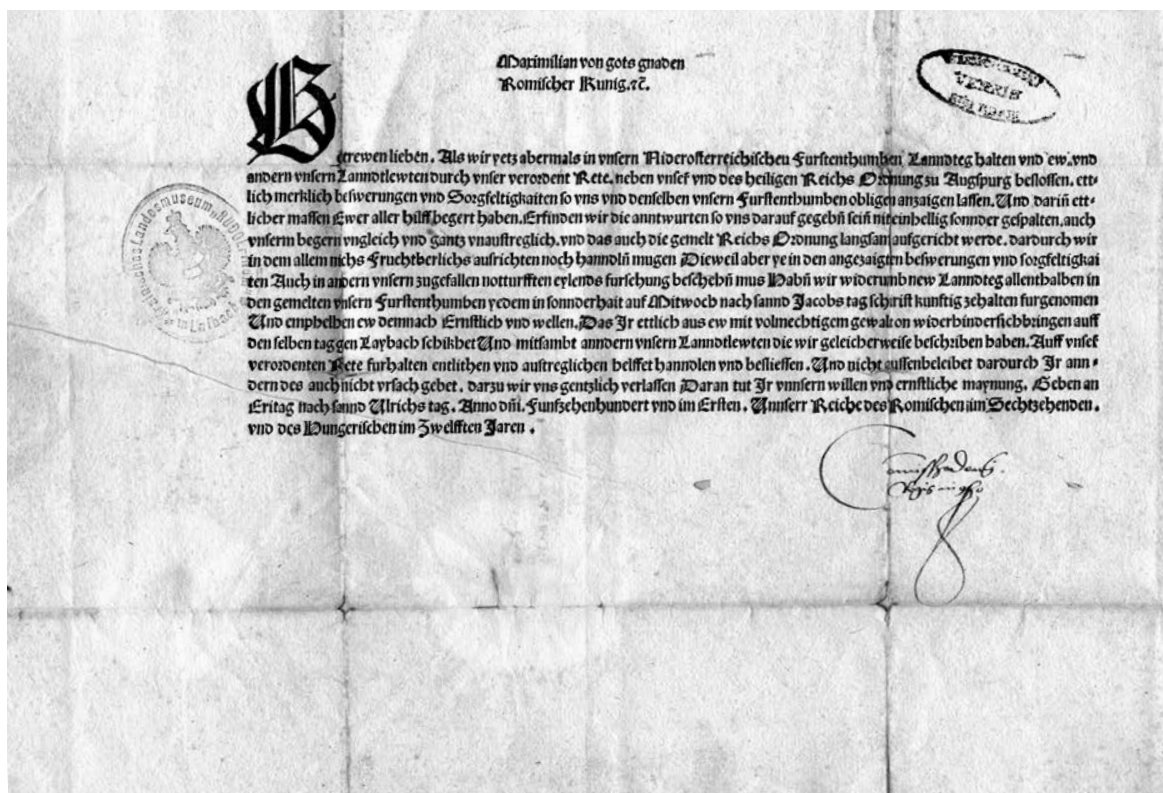 Maximilian von gots gnaden
Romischer Kunig.ꝛc̄.
HISTORISCHER VEREIN FÜR KRAIN
Getrewen lieben. Als wir yetz abermals in vnsern Niderosterreichischen Furstenthumben Lanndteg halten vnd ew.vnd
andern vnsern Lanndtlewten durch vnser verordent Rete. neben vnser vnd des heiligen Reichs Ordnung zu Augspurg beslossen. ett-
lich merklich beswerungen vnd Sorgfeltigkaiten so vns vnd denselben vnsern Furstenthumben obligen anzaigen lassen. Und dariñ ett-
licher massen Ewer aller hilff begert haben. Erfinden wir die anntwurten so vns darauf gegebñ seiñ nit einhellig sonnder gespalten. auch
vnserm begern vngleich vnd gantz vnaustreglich. vnd das auch die gemelt Reichs Ordnung langsam aufgericht werde. dardurch wir
in dem allem nichs Fruchtberlichs ausrichten noch hanndlñ mugen Dieweil aber ye in den angezaigten beswerungen vnd sorgfeltigkai
ten Auch in andern vnsern zugefallen notturfften eylends fursehung beschehñ mus Habñ wir widerumb new Lanndteg allenthalben in
den gemelten vnsern Furstenthumben yedem in sonnderhait auf Mitwoch nach sannd Jacobs tag schrist kunftig zehalten furgenomen
Und emphelhen ew demnach Ernstlich vnd wellen. Das Ir ettlich aus ew mit volmechtigem gewalt on widerhindersichbringen auff
den selben tag gen Laybach schikhet Und mitsambt anndern vnsern Lanndtlewten die wir geleicherweise beschriben haben. Auff vnser
verordenten Rete furhalten entlithen vnd austreglichen helffet hanndlen vnd besliessen. Und nicht aussenbeleibet dardurch Ir ann-
dern des auch nicht vrsach gebet. darzu wir vns gentzlich verlassen Daran tut Ir vnnsern willen vnd ernstliche maynung. Geben an
Eritag nach sannd Ulrichs tag. Anno dñi. Funfzehenhundert vnd im Ersten. Unnserr Reiche des Romischen im Sechtzehenden.
vnd des Hungerischen im Zwelfften Jaren.